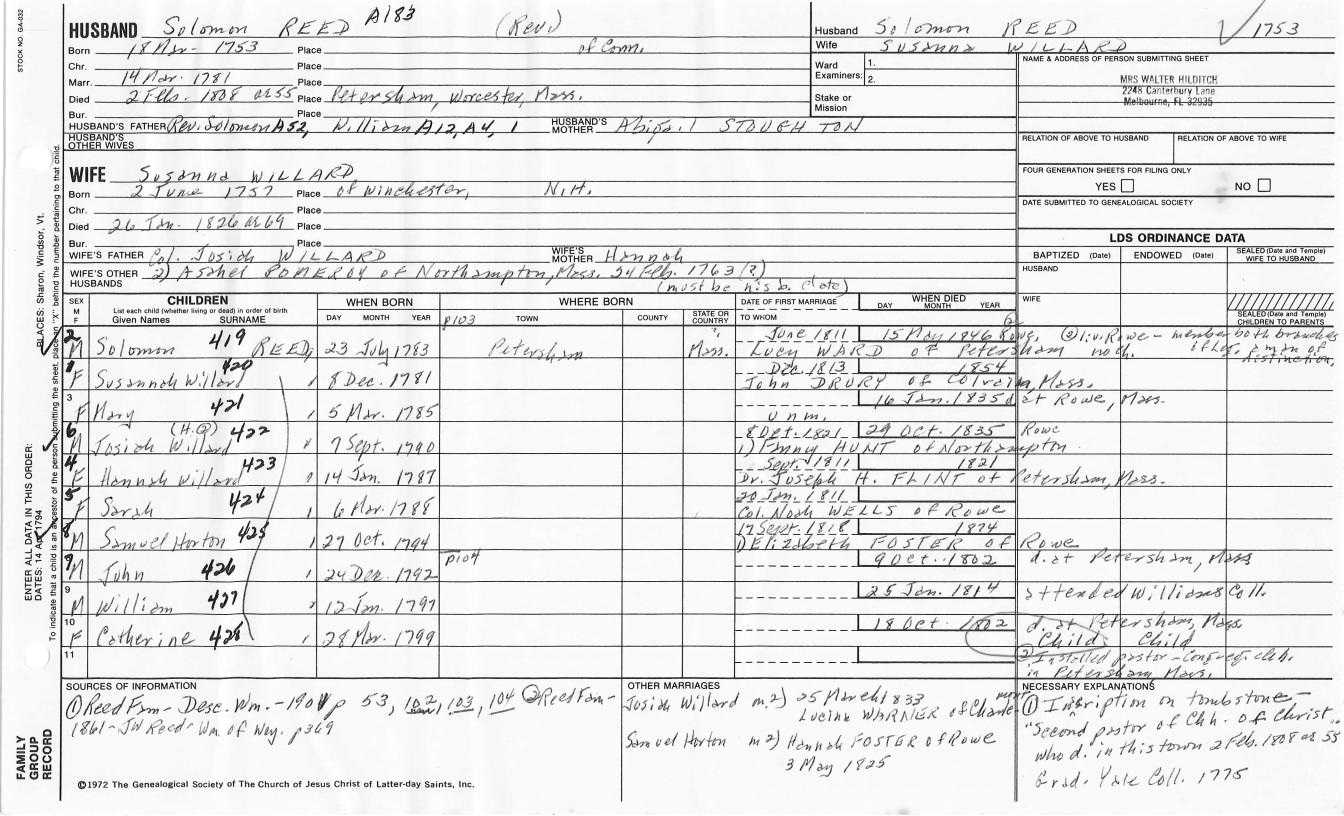 STOCK NO. GA-032
HUSBAND Solomon REED A183 (Rev.)
Born 18 Mar- 1753 Place of Conn.
Chr. Place
Marr. 14 Mar. 1781 Place
Died 2 Feb. 1808 ae 55 Place Petersham, Worcester, Mass.
Bur. Place
HUSBAND'S FATHER Rev. Solomon A52, William A12, A4, 1 HUSBAND'S MOTHER Abigail STOUGHTON
HUSBAND'S OTHER WIVES
Husband Solomon REED 1753
Wife Susanna WILLARD
Ward Examiners: 1. 2.
Stake or Mission
NAME & ADDRESS OF PERSON SUBMITTING SHEET
MRS WALTER HILDITCH
2248 Canterbury Lane
Melbourne, FL 32935
RELATION OF ABOVE TO HUSBAND RELATION OF ABOVE TO WIFE
FOUR GENERATION SHEETS FOR FILING ONLY
YES NO
DATE SUBMITTED TO GENEALOGICAL SOCIETY
WIFE Susanna WILLARD
Born 2 June 1757 Place of Winchester, N.H.
Chr. Place
Died 26 Jan. 1826 ae 69 Place
Bur. Place
WIFE'S FATHER Col. Josiah WILLARD WIFE'S MOTHER Hannah
WIFE'S OTHER HUSBANDS 2) Asahel POMEROY of Northampton, Mass. 24 Feb. 1763 (?)
(must be his b. date)
LDS ORDINANCE DATA
BAPTIZED (Date) ENDOWED (Date) SEALED (Date and Temple) WIFE TO HUSBAND
HUSBAND
WIFE
SEALED (Date and Temple) CHILDREN TO PARENTS
SEX M F CHILDREN List each child (whether living or dead) in order of birth Given Names SURNAME WHEN BORN DAY MONTH YEAR WHERE BORN TOWN COUNTY STATE OR COUNTRY DATE OF FIRST MARRIAGE TO WHOM WHEN DIED DAY MONTH YEAR
p103
2 M Solomon 419 REED, 23 July 1783 Petersham Mass. June 1811 15 May 1846 Rowe,
Lucy WARD of Petersham
1 F Susannah Willard 420 " 8 Dec. 1781 Dec. 1813 1854
John DRURY of Colrain, Mass.
3 F Mary 421 " 5 Mar. 1785 16 Jan. 1835 d at Rowe, Mass.
unm.
6 M Josiah Willard (H.Q) 422 " 7 Sept. 1790 8 Oct. 1821 29 Oct. 1835 Rowe
1) Fanny HUNT of Northampton
4 F Hannah Willard 423 " 14 Jan. 1787 Sept. 1811 1821
Dr. Joseph H. FLINT of Petersham, Mass.
5 F Sarah 424 " 6 Mar. 1788 20 Jan. 1811
Col. Noah WELLS of Rowe
8 M Samuel Horton 425 " 27 Oct. 1794 17 Sept. 1818 1874
1) Elizabeth FOSTER of Rowe
p104
7 M John 426 " 24 Dec. 1792 9 Oct. 1802 d. at Petersham, Mass
9 M William 427 " 12 Jan. 1797 25 Jan. 1814 attended Williams Coll.
10 F Catherine 428 " 28 Mar. 1799 18 Oct. 1802 d. at Petersham, Mass
Child Child
11
② Installed pastor - Congreg. chh.
in Petersham, Mass.
SOURCES OF INFORMATION
① Reed Fam - Desc. Wm. - 1901 p 53, 102, 103, 104 ② Reed Fam -
1861 - JW Reed - Wm of Wey. p369
OTHER MARRIAGES
Josiah Willard m. 2) 25 March 1833
Lucina WARNER of
Samuel Horton m 2) Hannah FOSTER of Rowe
3 May 1825
NECESSARY EXPLANATIONS
① Inscription on tombstone -
"Second pastor of Chh. of Christ
who d. in this town 2 Feb. 1808 ae 55
Grad. Yale Coll. 1775
©1972 The Genealogical Society of The Church of Jesus Christ of Latter-day Saints, Inc.
FAMILY GROUP RECORD
ENTER ALL DATA IN THIS ORDER:
DATES: 14 Apr 1794
PLACES: Sharon, Windsor, Vt.
To indicate that a child is an ancestor of the person submitting the sheet, place an "X" behind the number pertaining to that child.